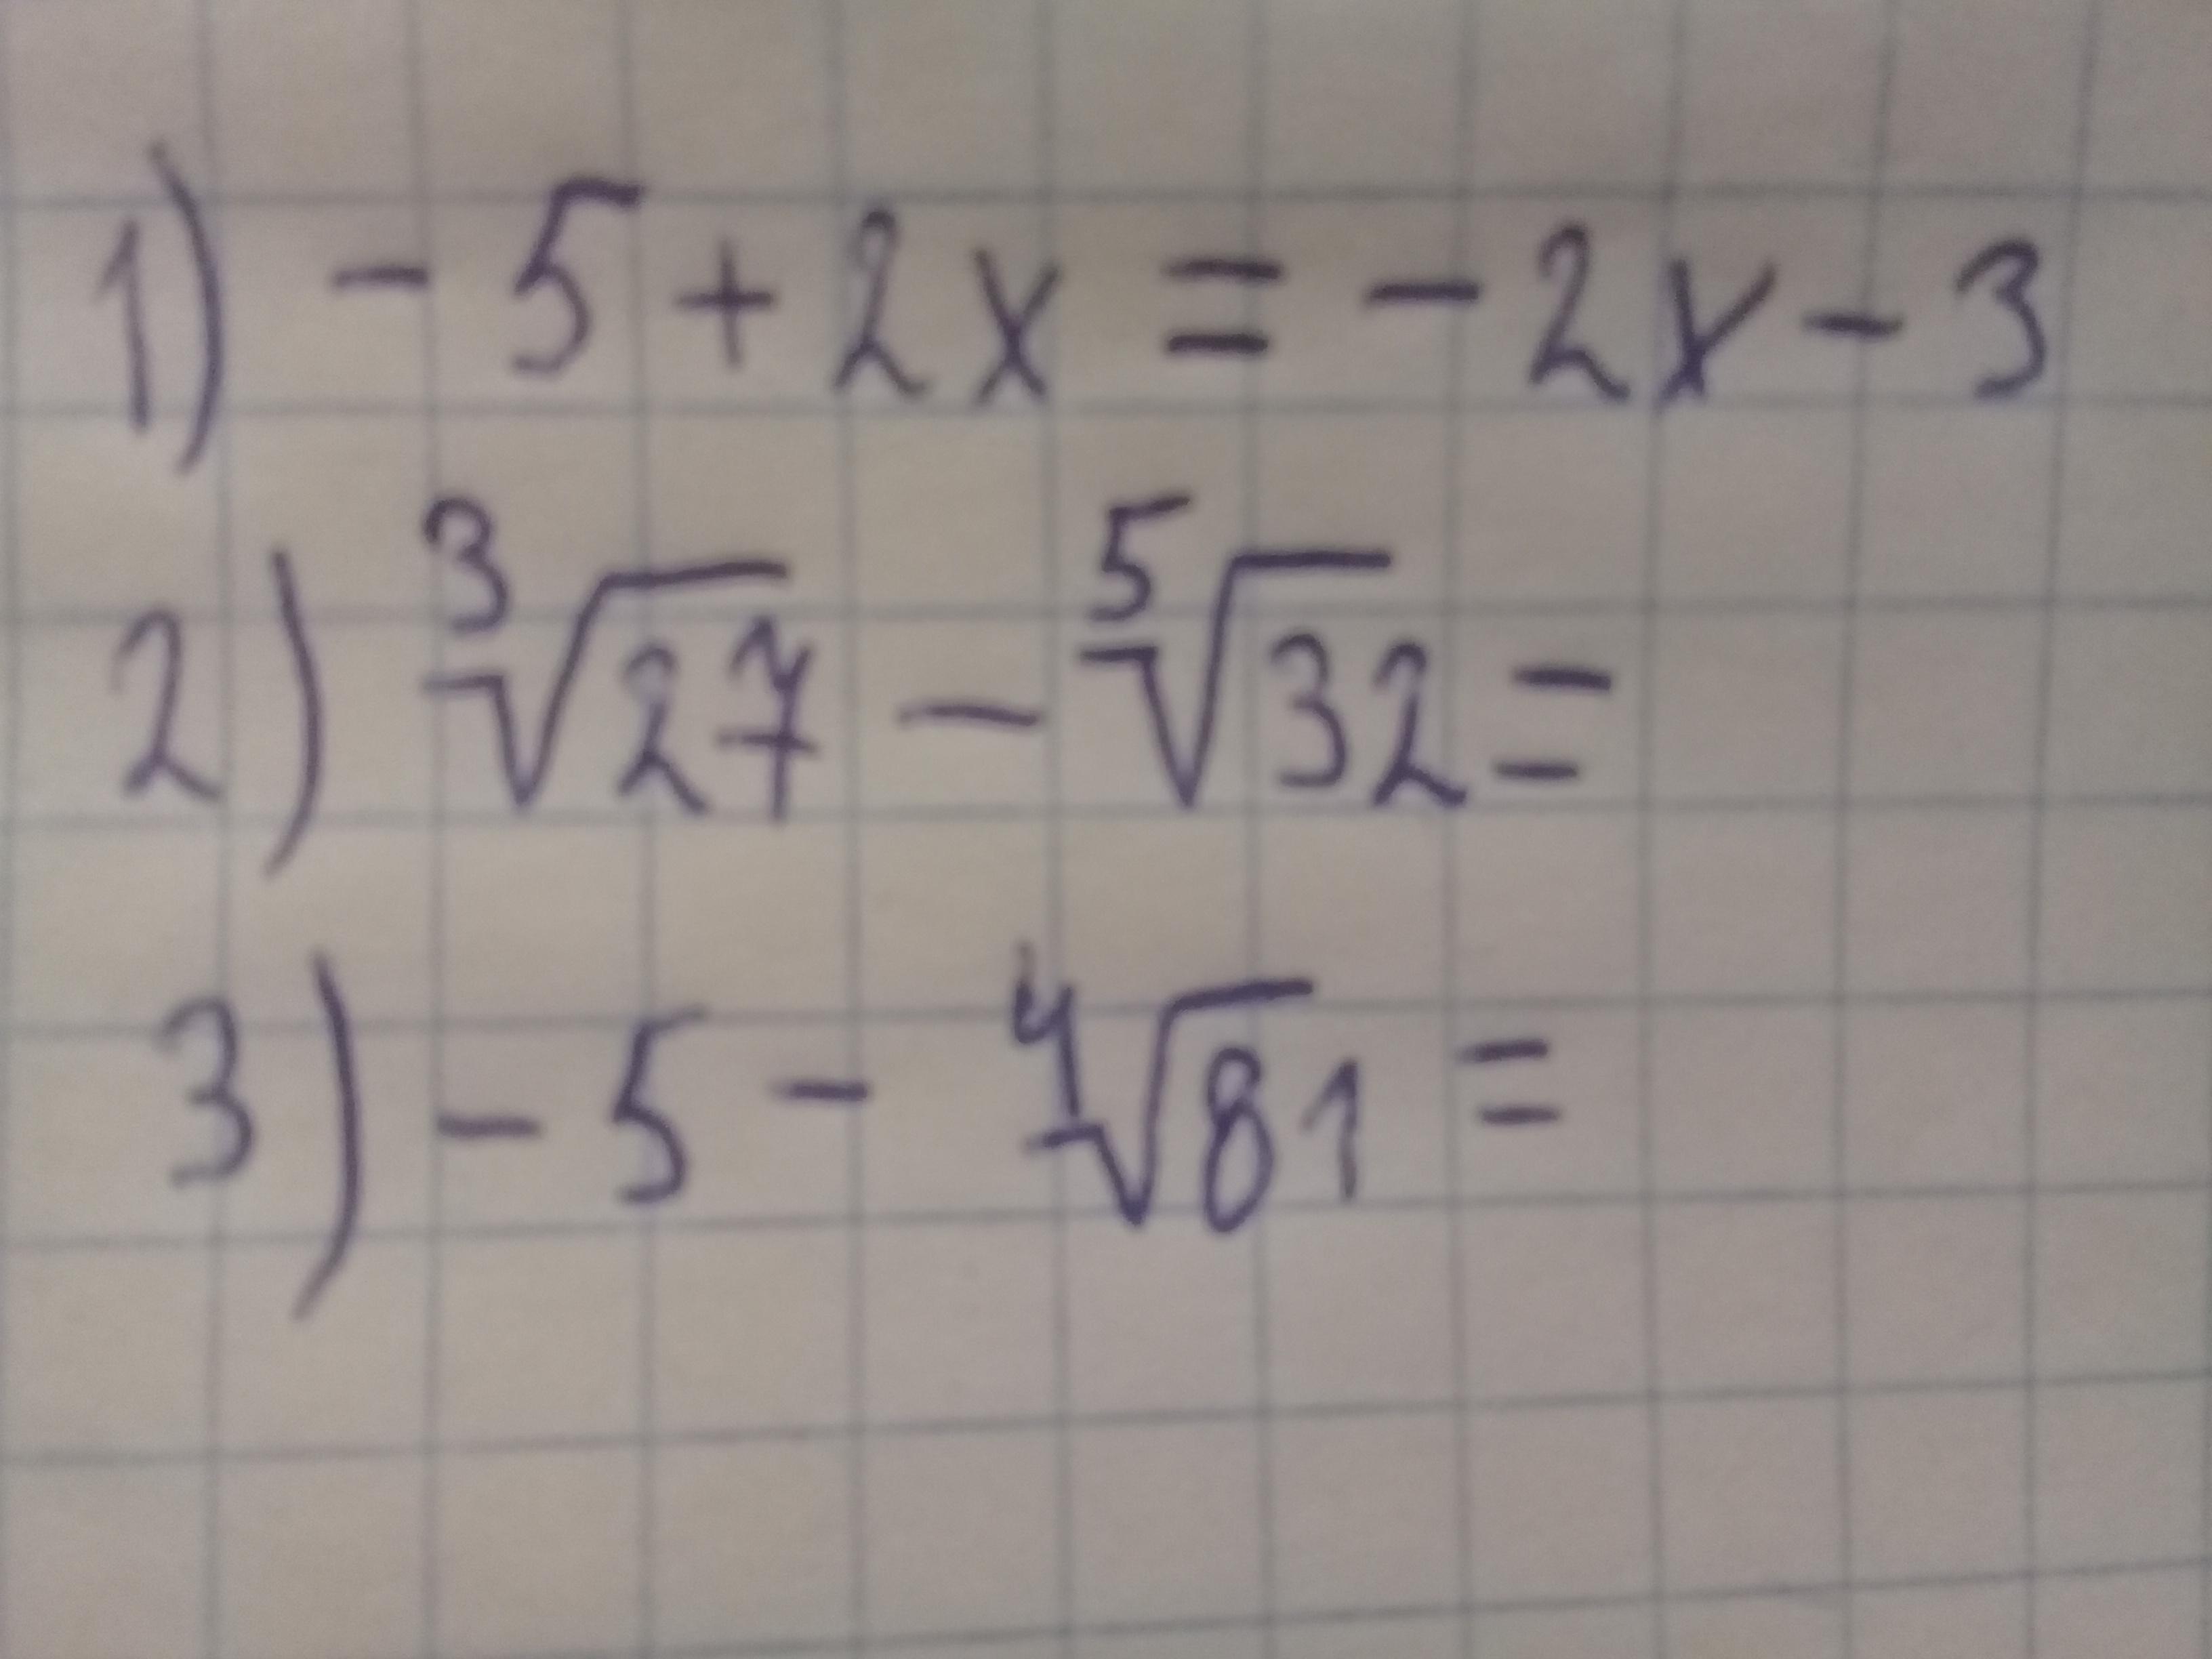 1) - 5 + 2x = - 2x - 3
2) ³√27 - ⁵√32 =
3) - 5 - ⁴√81 =